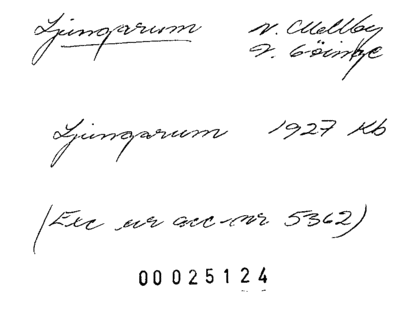 Ljungarum N. Mellby
V. Göinge
Ljungarum 1927 Kb
(Exc ur acc-nr 5362)
00025124